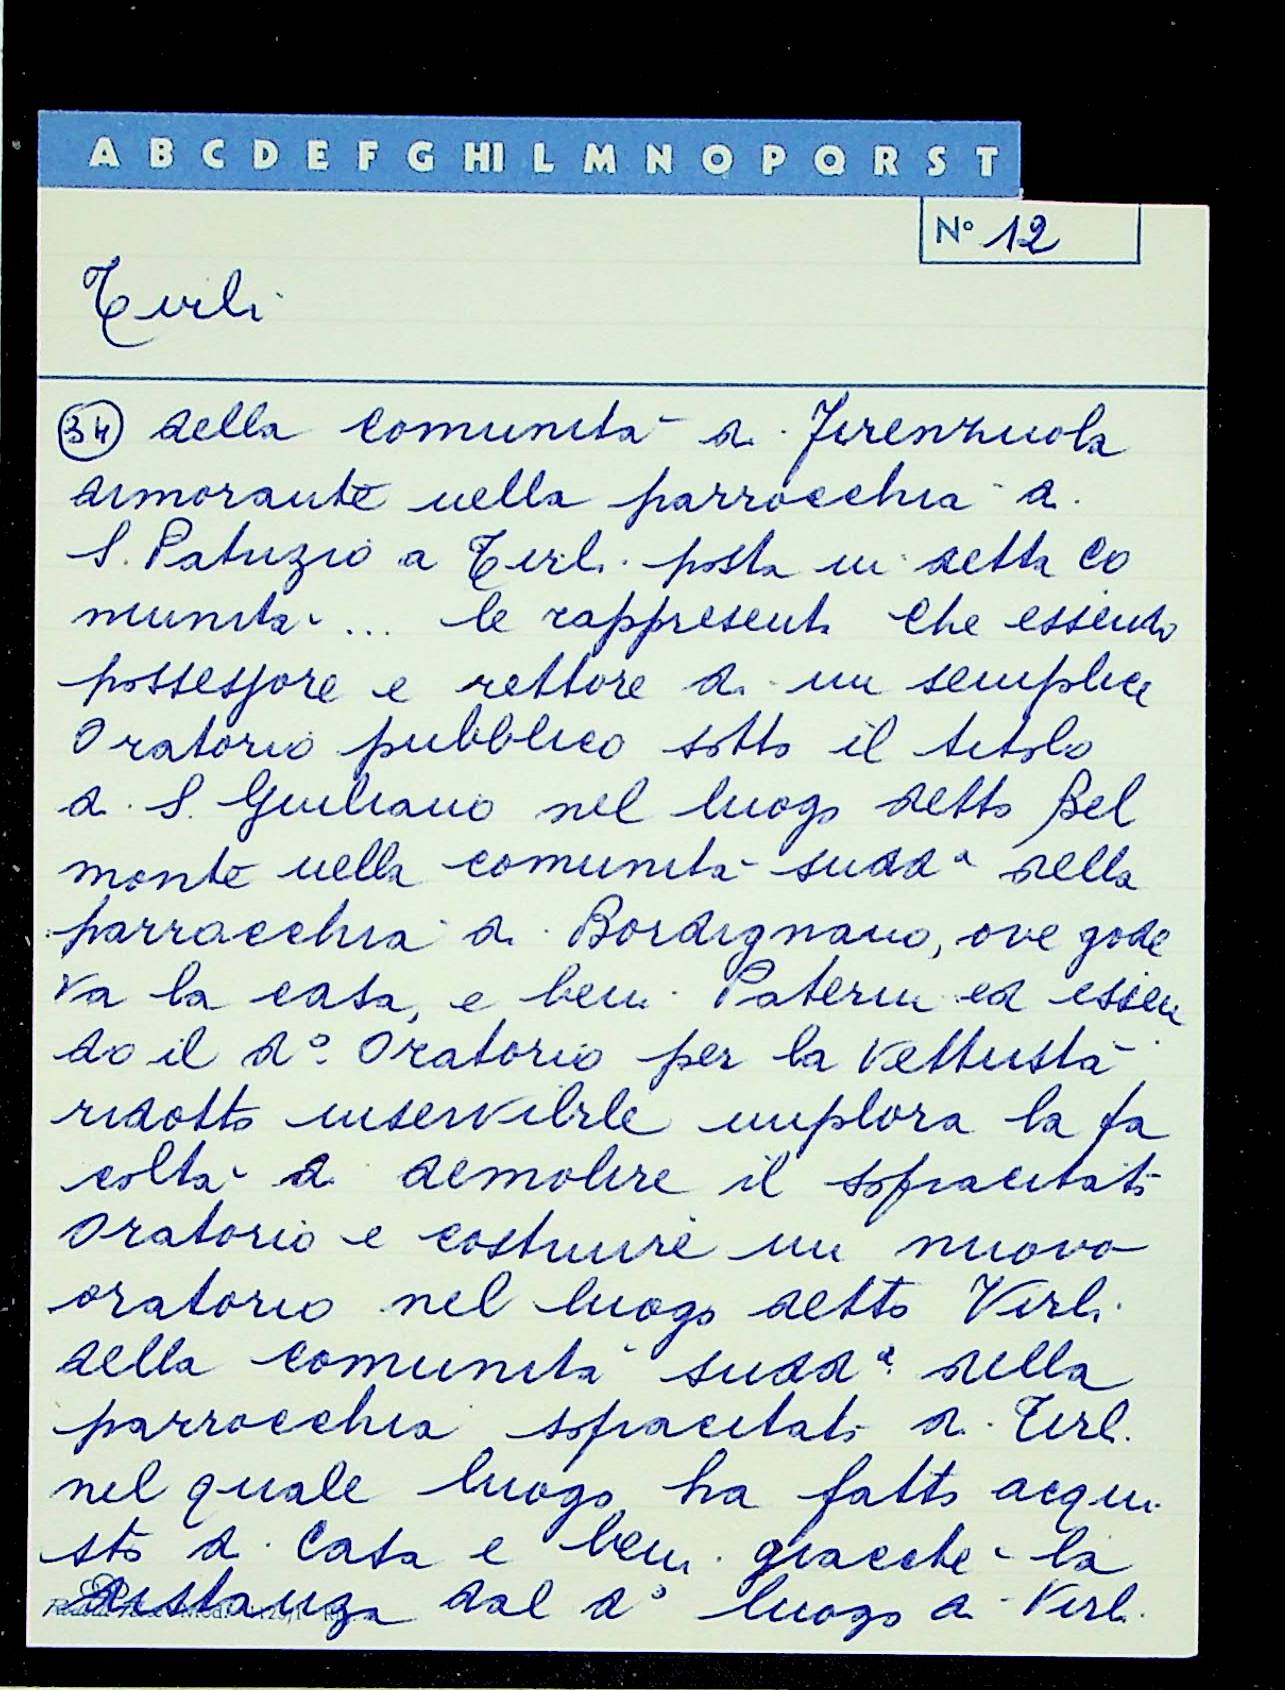 A B C D E F G HI L M N O P Q R S T
N° 12
Tirli
34 della comunità di Firenzuola
dimorante nella parrocchia di
S. Patrizio a Tirli posta in detta co
munità ... le rappresenta che essendo
possessore e rettore di un semplice
Oratorio pubblico sotto il titolo
di S. Giuliano nel luogo detto Bel
monte nella comunità sudda della
parrocchia di Bordignano, ove gode
va la casa, e beni Paterni ed essen
do il do. Oratorio per la vettustà
ridotto inservibile implora la fa
coltà di demolire il sopracitato
Oratorio e costruire un nuovo
oratorio nel luogo detto Virli
della comunità sudda. della
parrocchia sopracitata di Tirli
nel quale luogo ha fatto acqui
sto di casa e beni giacchè la
distanza dal do luogo di Virli